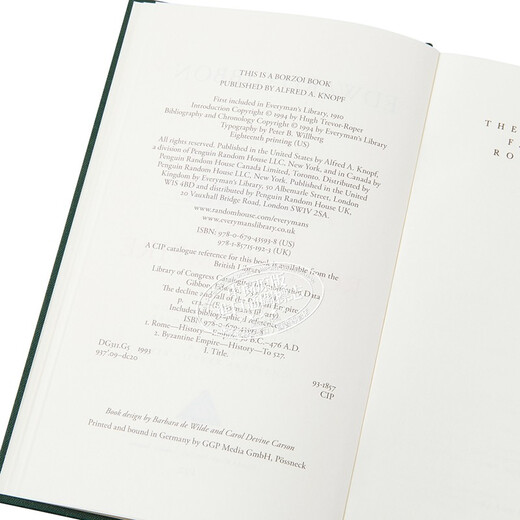 THIS IS A BORZOI BOOK
PUBLISHED BY ALFRED A. KNOPF
First included in Everyman's Library, 1910
Introduction Copyright © 1994 by Hugh Trevor-Roper
Bibliography and Chronology Copyright © 1994 by Everyman's Library
Typography by Peter B. Willberg
Eighteenth printing (US)
All rights reserved. Published in the United States by Alfred A. Knopf,
a division of Penguin Random House LLC, New York, and in Canada by
Penguin Random House Canada Limited, Toronto. Distributed by
Penguin Random House LLC, New York. Published in the United
Kingdom by Everyman's Library, 50 Albemarle Street, London
W1S 4BD and distributed by Penguin Random House UK,
20 Vauxhall Bridge Road, London SW1V 2SA.
www.randomhouse.com/everymans
www.everymanslibrary.co.uk
ISBN: 978-0-679-41193-8 (US)
978-1-85715-192-3 (UK)
A CIP catalogue reference for this book is available from the
British Library
Library of Congress Data
Gibbon,
The decline and fall of the
Includes bibliographical reference
ISBN 978-0-679-41193-8
1. Rome—History— B.C.–476 A.D.
2. Byzantine Empire—History—To 527.
I. Title.
DG311.G5 1993
937'.09-dc20
93-1857
CIP
Book design by Barbara de Wilde and Carol Devine Carson
Printed and bound in Germany by GGP Media GmbH, Pössneck
THE
F
RO